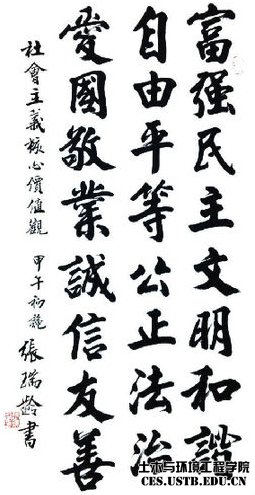 富强民主文明和諧
自由平等公正法治
愛國敬業誠信友善
社會主義核心價值觀 甲午初龝 張瑞齡書
土木与环境工程学院
CES.USTB.EDU.CN